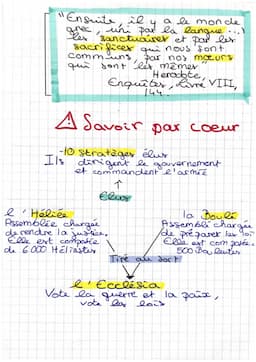 "Ensuite, il y a le monde
grec, uni par la langue...)
les sanctuaires et par les
sacrifices qui nous sont
communs, par nos mœurs
qui sont les mêmes"
Herodote,
Enquêtes, livre VIII,
144.
⚠ Savoir par coeur
-10 Stratèges élus
Ils dirigent le gouvernement
et commandent l'armée
Elus
l'Héliée
Assemblée chargée
de rendre la justice.
Elle est composée
de 6000 Héliastes
la Boulè
Assemblé chargée
de préparer les loi
Elle est composée.
500 Bouleutes
Tiré au sort
l'Ecclésia
Vote la guerre et la paix,
vote les lois